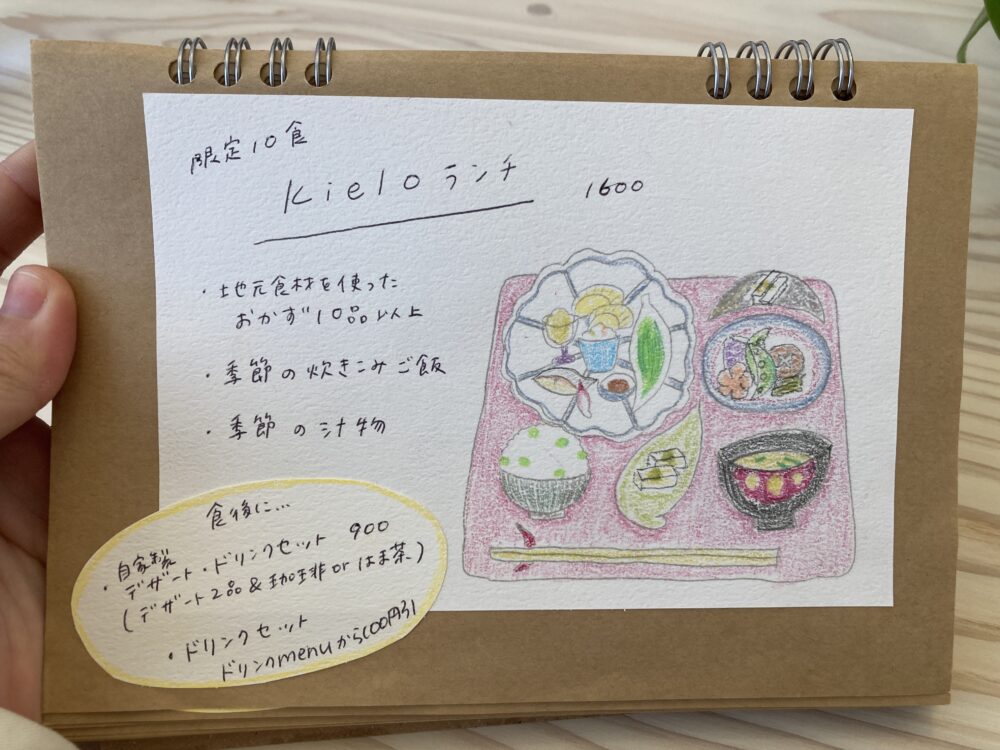 限定10食
Kielo ランチ 1600
・地元食材を使った
おかず10品以上
・季節の炊きこみご飯
・季節の汁物
食後に…
・自家製
デザート・ドリンクセット 900
(デザート2品&珈琲orはま茶)
・ドリンクセット
ドリンクmenuから100円引